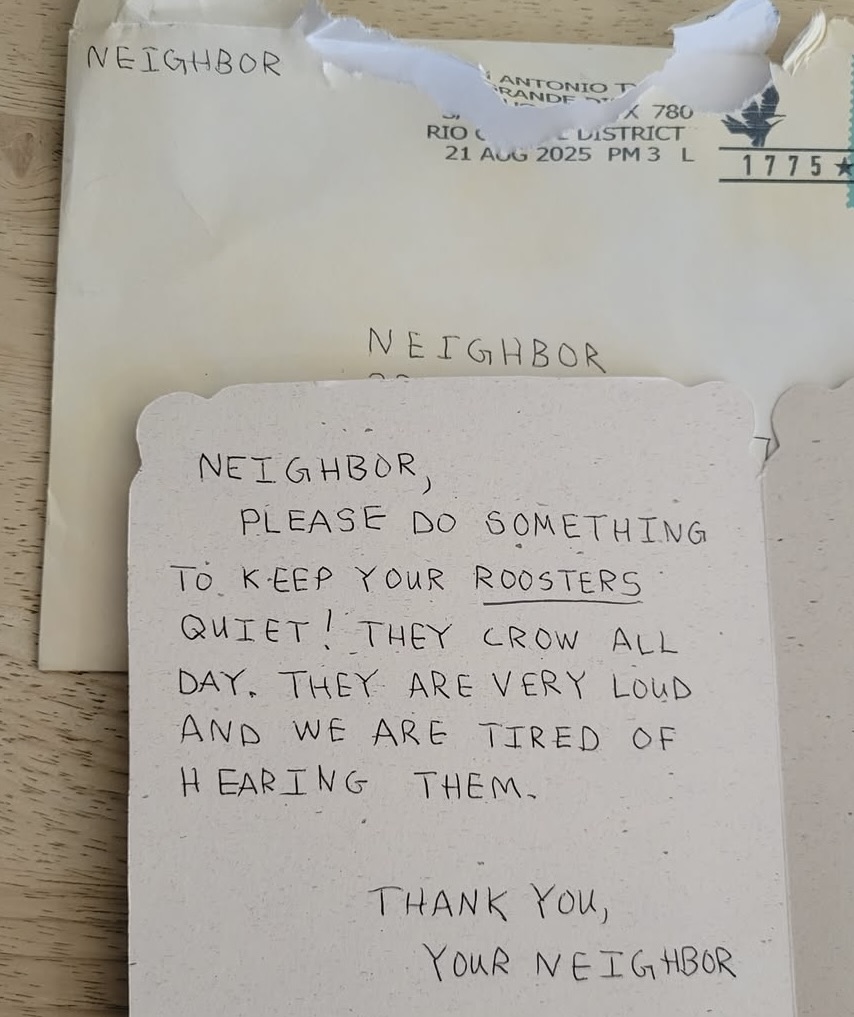 NEIGHBOR
ANTONIO
X 780
RIO DISTRICT
21 AUG 2025 PM 3 L
1775★
NEIGHBOR
NEIGHBOR,
PLEASE DO SOMETHING
TO KEEP YOUR ROOSTERS
QUIET! THEY CROW ALL
DAY. THEY ARE VERY LOUD
AND WE ARE TIRED OF
HEARING THEM.
THANK YOU,
YOUR NEIGHBOR